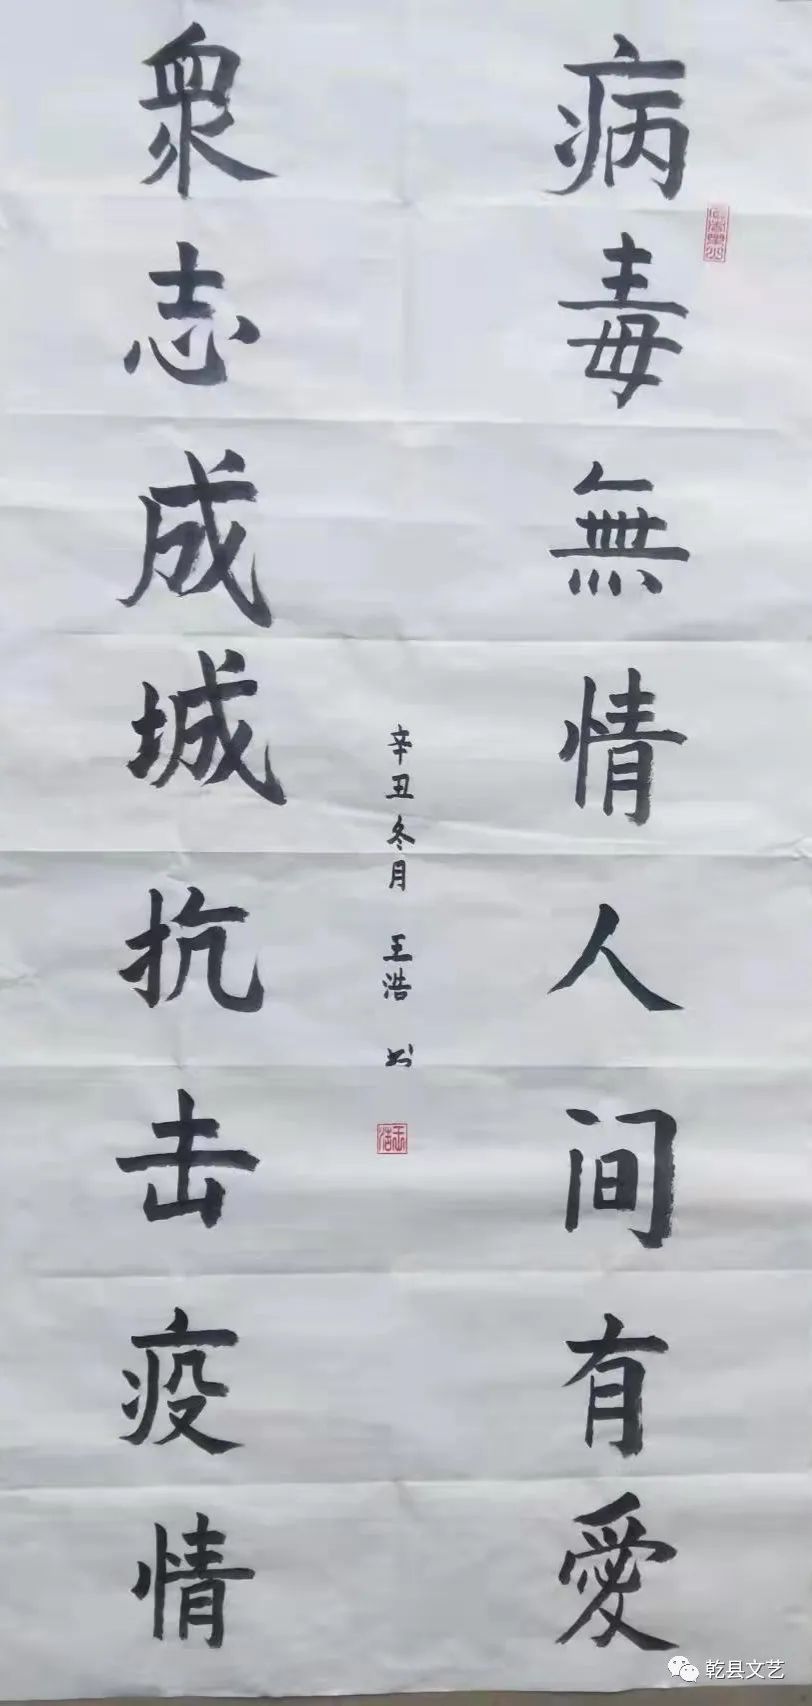 病毒無情人间有愛
衆志成城抗击疫情
辛丑冬月 王浩
乾县文艺